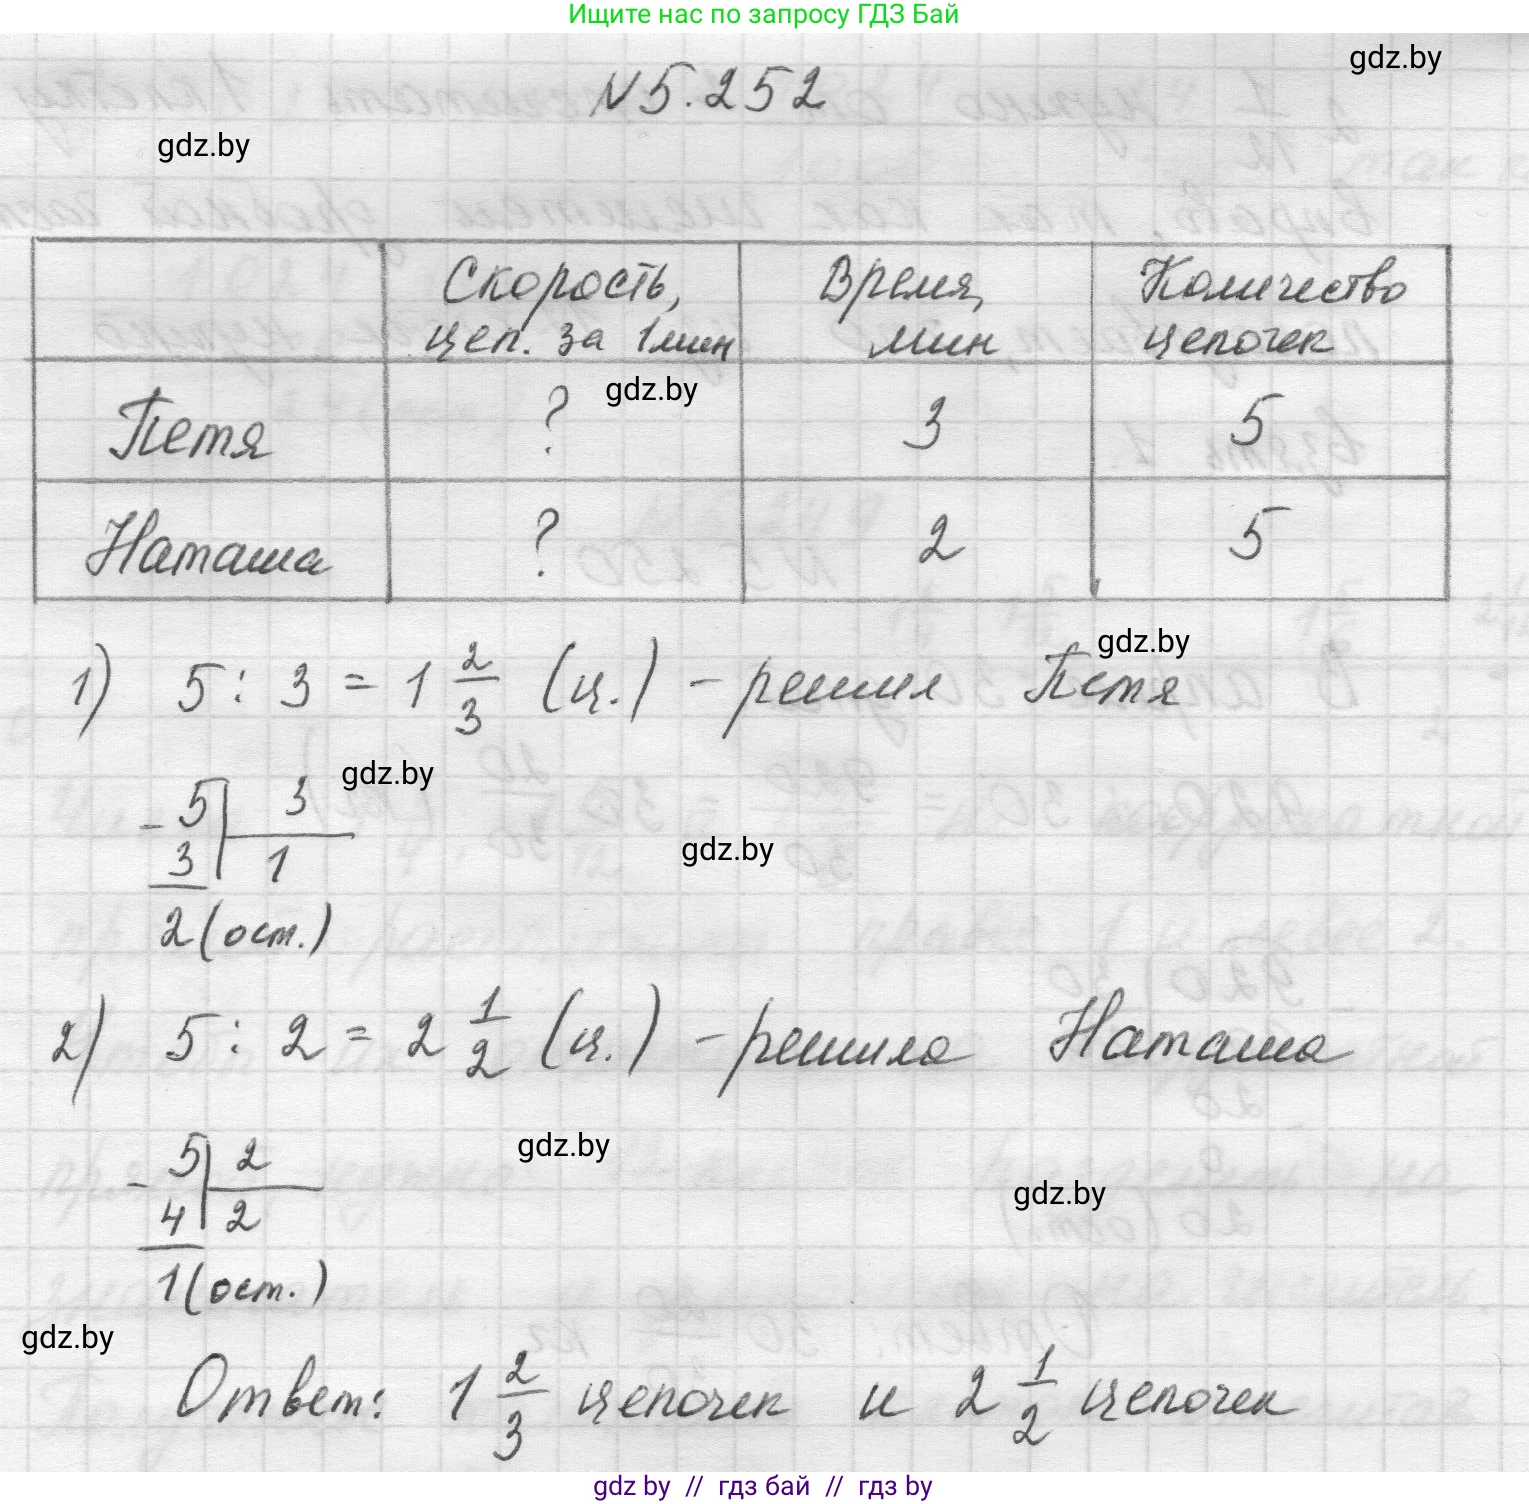 Ищите нас по запросу ГДЗ Бай
gdz.by
N 5.252
gdz.by
Скорость, цеп. за 1 мин
Время, мин
Количество цепочек
gdz.by
Петя ? 3 5
Наташа ? 2 5
gdz.by
1) 5 : 3 = 1 2/3 (ц.) - решил Петя
gdz.by
- 5 | 3
gdz.by
3 | 1
2 (ост.)
2) 5 : 2 = 2 1/2 (ц.) - решила Наташа
gdz.by
- 5 | 2
gdz.by
4 | 2
1 (ост.)
gdz.by
Ответ: 1 2/3 цепочек и 2 1/2 цепочек
gdz by // гдз бай // гдз by